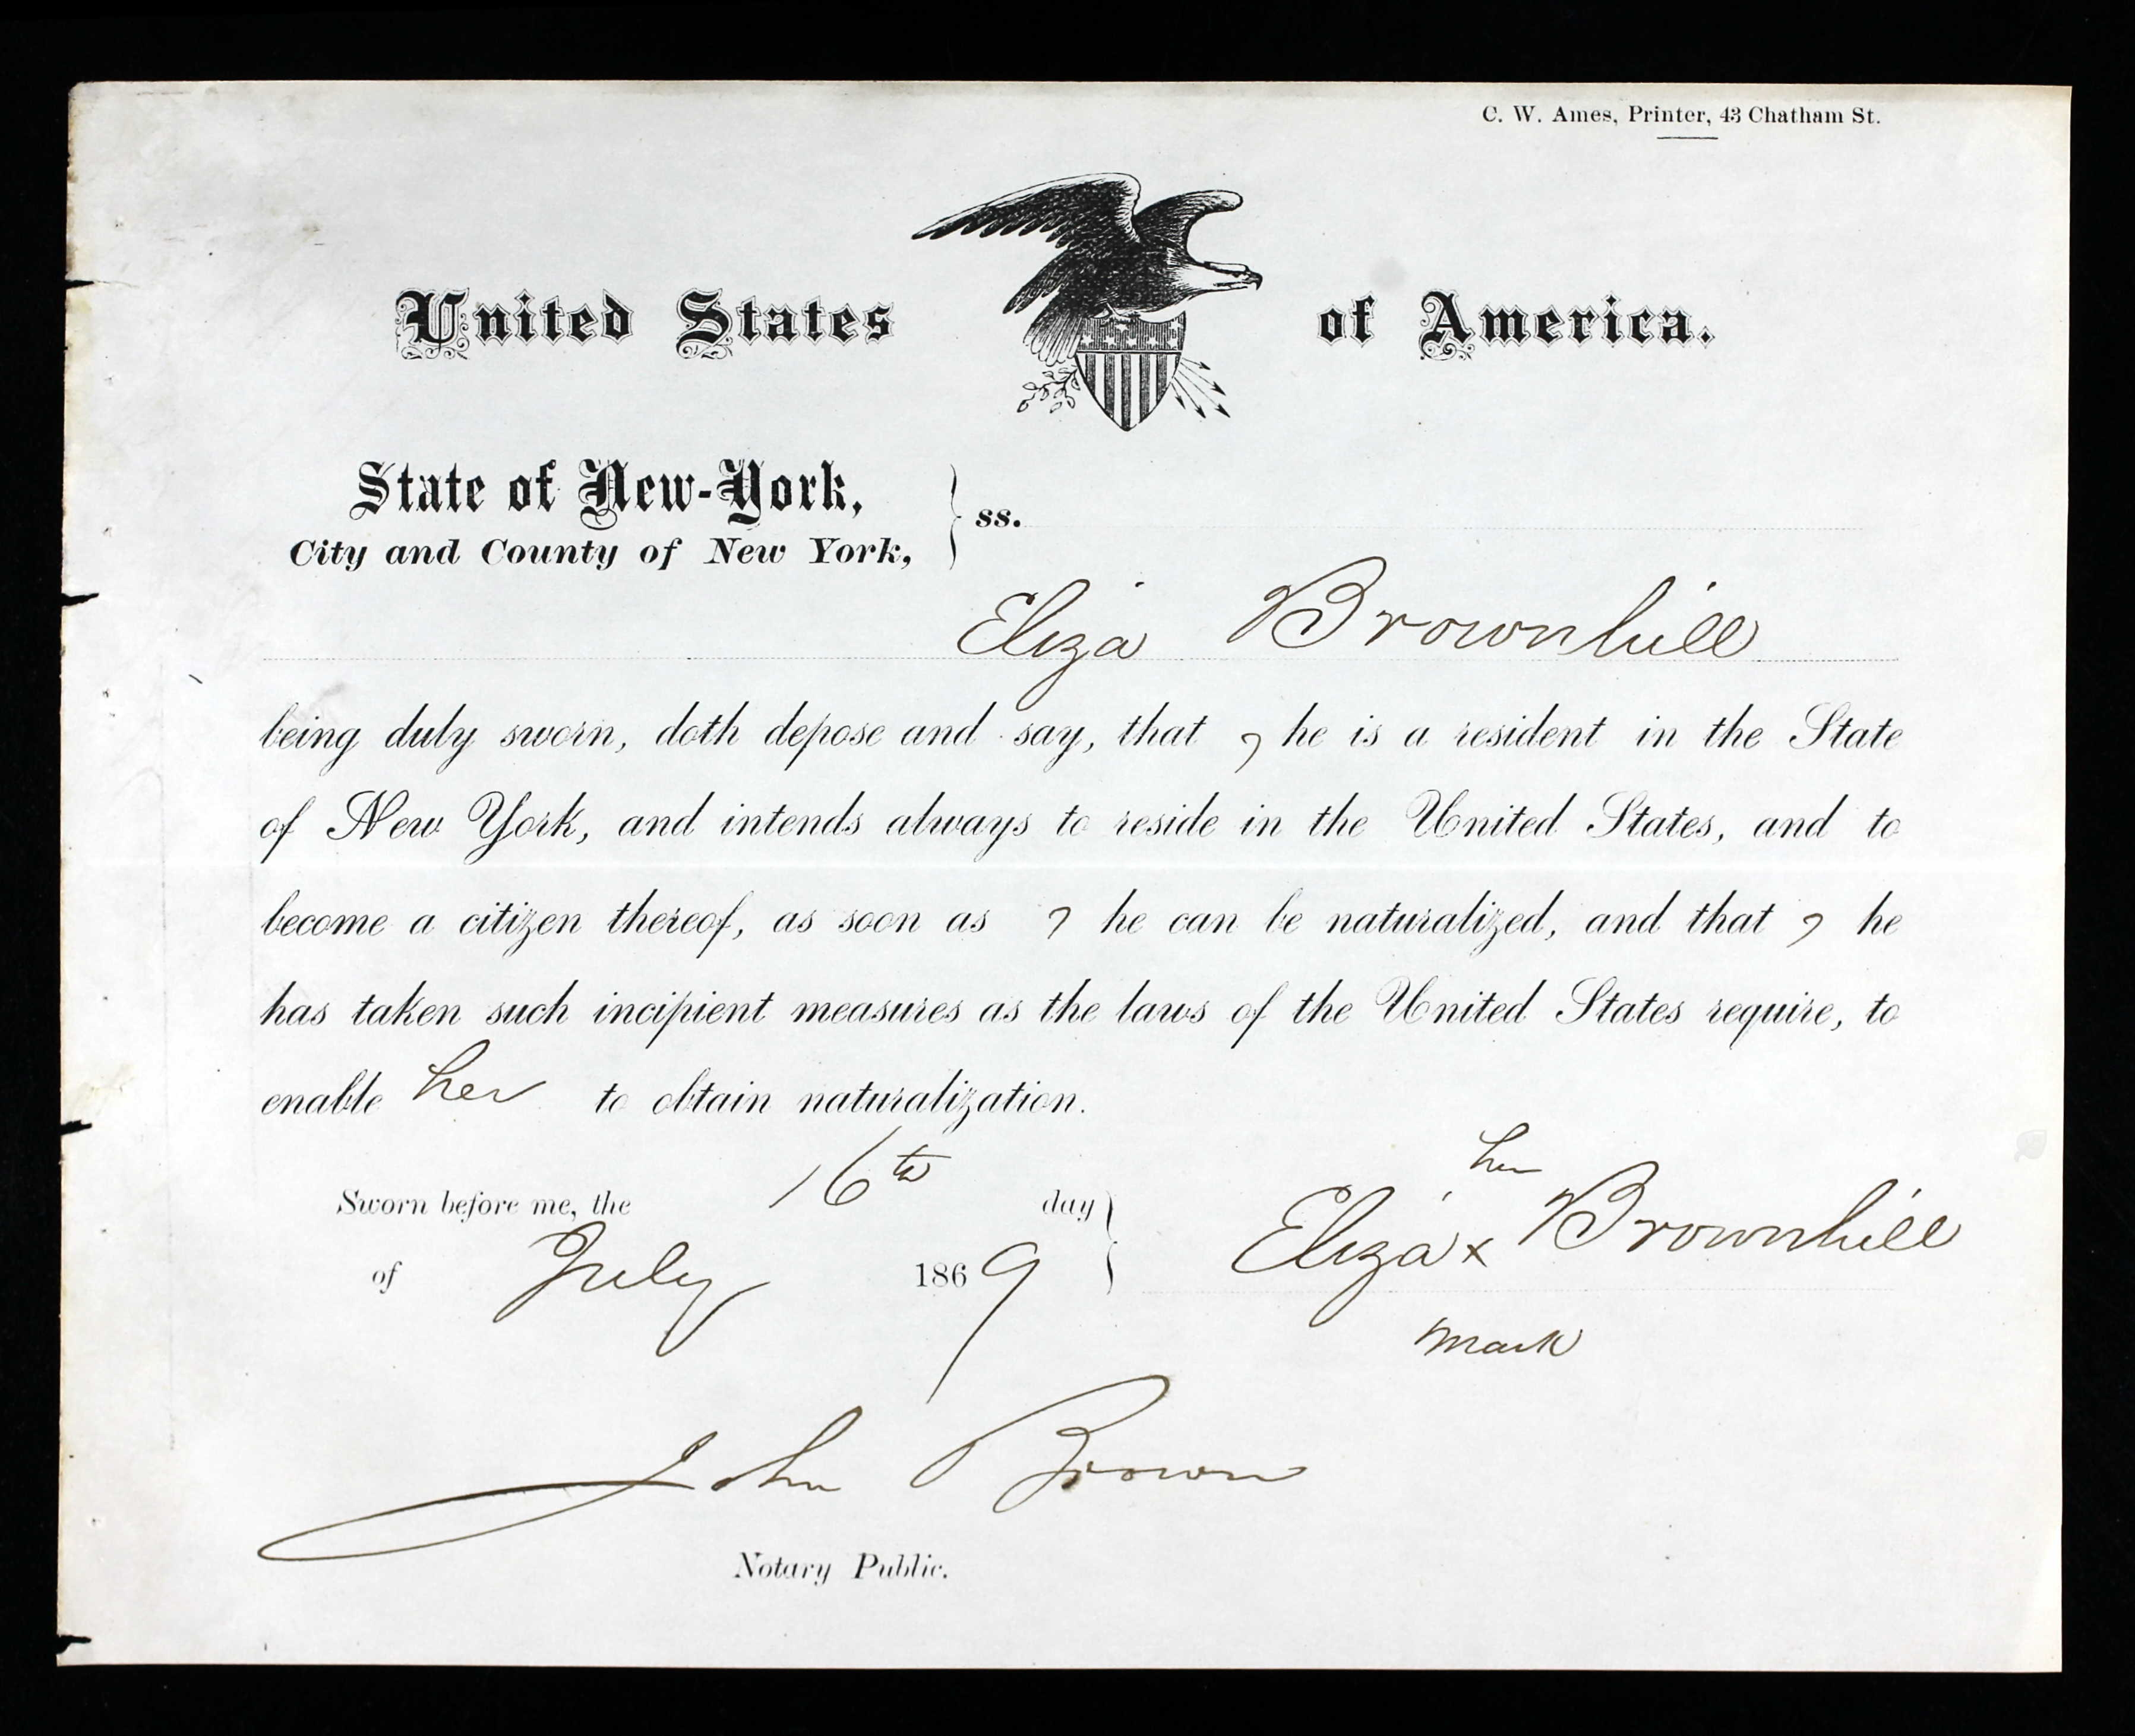 C. W. Ames, Printer, 43 Chatham St.
United States of America.
State of New-York,
City and County of New York, } ss.
Eliza Brownhill
being duly sworn, doth depose and say, that s he is a resident in the State
of New York, and intends always to reside in the United States, and to
become a citizen thereof, as soon as s he can be naturalized, and that s he
has taken such incipient measures as the laws of the United States require, to
enable her to obtain naturalization.
Sworn before me, the 16th day
of July 1869
her
Eliza x Brownhill
mark
John Brown
Notary Public.